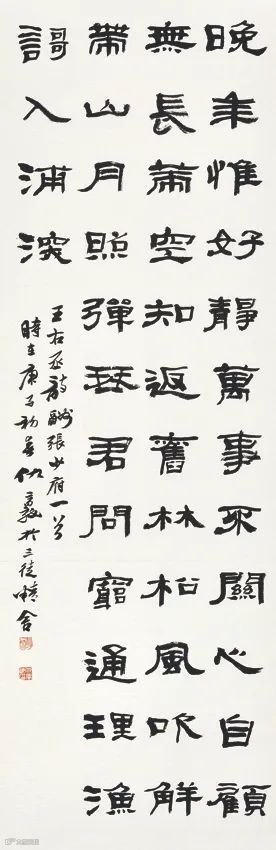 晚年惟好靜萬事不關心自顧
無長策空知返舊林松風吹解
帶山月照彈琴君問窮通理漁
謌入浦深
王右丞詩酬張少府一首
時在庚子初春於三徒舍